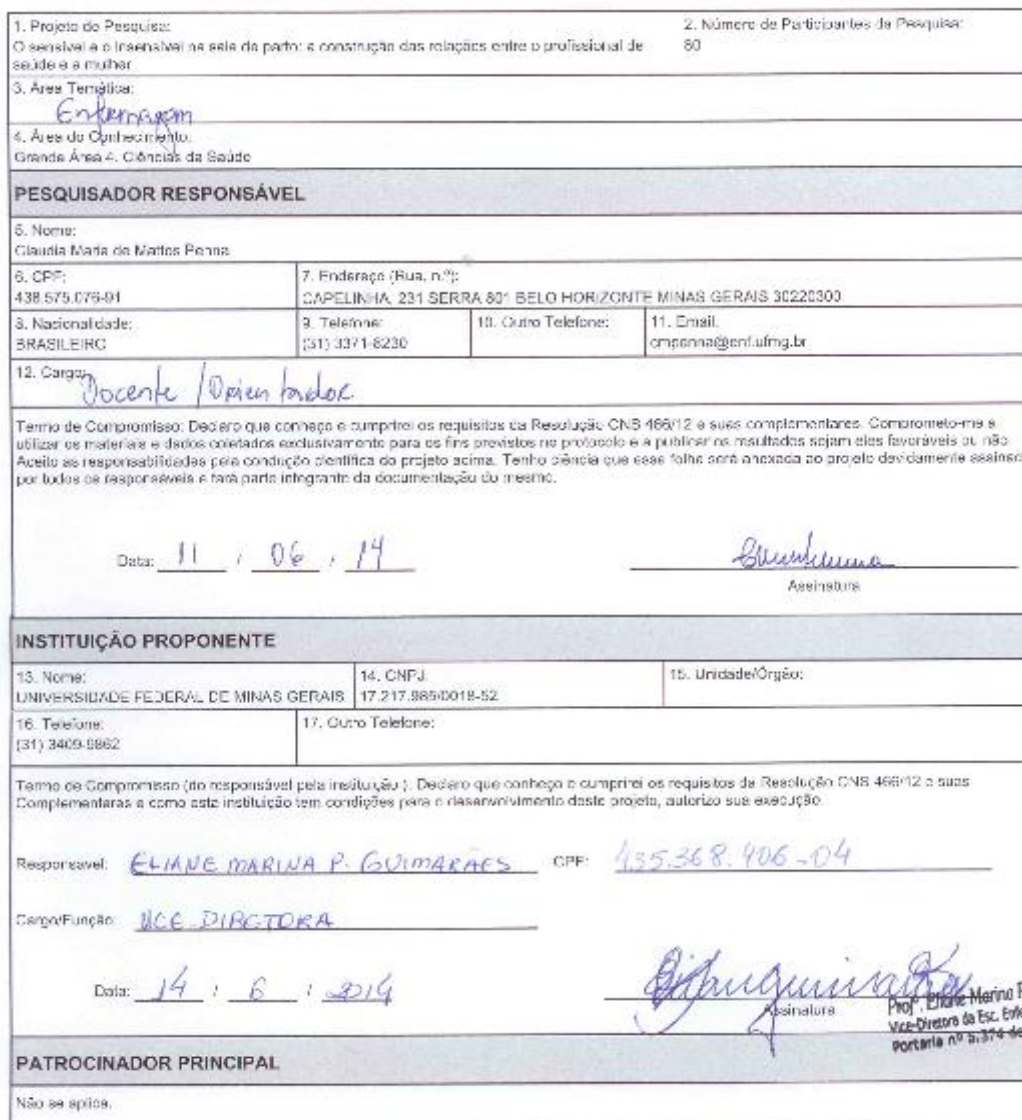 1. Projeto de Pesquisa:
O sensível e o insensível na sala de parto: a construção das relações entre o profissional de
saúde e a mulher
2. Número de Participantes da Pesquisa:
80
3. Área Temática:
Enfermagem
4. Área do Conhecimento:
Grande Área 4. Ciências da Saúde
PESQUISADOR RESPONSÁVEL
5. Nome:
Claudia Maria de Mattos Penna
6. CPF:
438.575.076-91
7. Endereço (Rua, n.º):
CAPELINHA, 231 SERRA 801 BELO HORIZONTE MINAS GERAIS 30220300
8. Nacionalidade:
BRASILEIRO
9. Telefone:
(31) 3371-8230
10. Outro Telefone:
11. Email:
cmpenna@enf.ufmg.br
12. Cargo:
Docente / Orientador
Termo de Compromisso: Declaro que conheço e cumprirei os requisitos da Resolução CNS 466/12 e suas complementares. Comprometo-me a
utilizar os materiais e dados coletados exclusivamente para os fins previstos no protocolo e a publicar os resultados sejam eles favoráveis ou não.
Aceito as responsabilidades pela condução científica do projeto acima. Tenho ciência que essa folha será anexada ao projeto devidamente assinada
por todos os responsáveis e fará parte integrante da documentação do mesmo.
Data: 11 / 06 / 14
Assinatura
INSTITUIÇÃO PROPONENTE
13. Nome:
UNIVERSIDADE FEDERAL DE MINAS GERAIS
14. CNPJ:
17.217.985/0018-52
15. Unidade/Órgão:
16. Telefone:
(31) 3409-9862
17. Outro Telefone:
Termo de Compromisso (do responsável pela instituição ): Declaro que conheço e cumprirei os requisitos da Resolução CNS 466/12 e suas
Complementares e como esta instituição tem condições para o desenvolvimento deste projeto, autorizo sua execução.
Responsável: ELIANE MARINA P. GUIMARÃES CPF: 435.368.906-04
Cargo/Função: VICE-DIRETORA
Data: 14 / 6 / 2014
Assinatura
Profª. Eliane Marina P
Vice-Diretora da Esc. Enfe
Portaria nº 5.374 de
PATROCINADOR PRINCIPAL
Não se aplica.